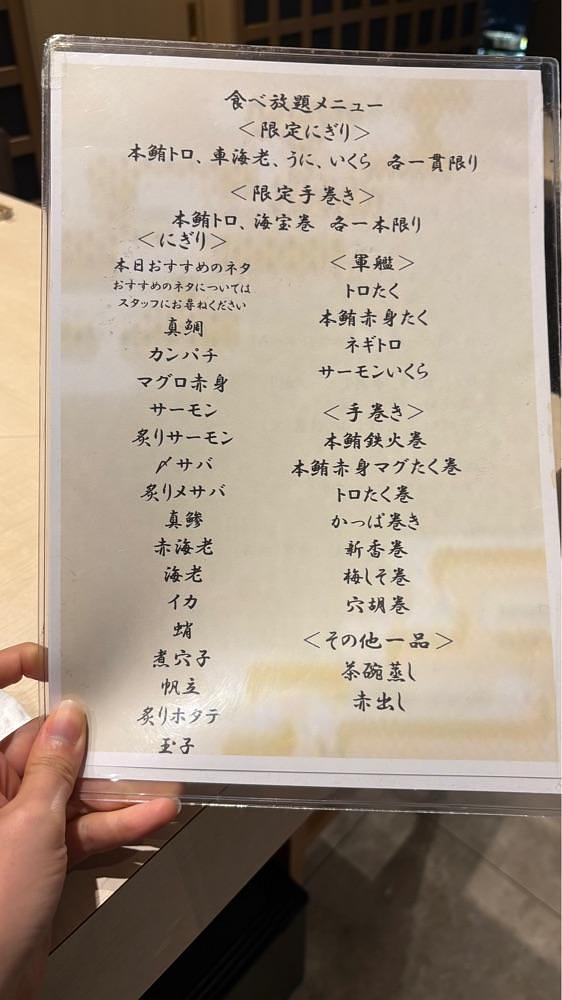 食べ放題メニュー
＜限定にぎり＞
本鮪トロ、車海老、うに、いくら 各一貫限り
＜限定手巻き＞
本鮪トロ、海宝巻 各一本限り
＜にぎり＞
本日おすすめのネタ
おすすめのネタについては
スタッフにお尋ねください
真鯛
カンパチ
マグロ赤身
サーモン
炙りサーモン
〆サバ
炙りメサバ
真鯵
赤海老
海老
イカ
蛸
煮穴子
帆立
炙りホタテ
玉子
＜軍艦＞
トロたく
本鮪赤身たく
ネギトロ
サーモンいくら
＜手巻き＞
本鮪鉄火巻
本鮪赤身マグたく巻
トロたく巻
かっぱ巻き
新香巻
梅しそ巻
穴胡巻
＜その他一品＞
茶碗蒸し
赤出し